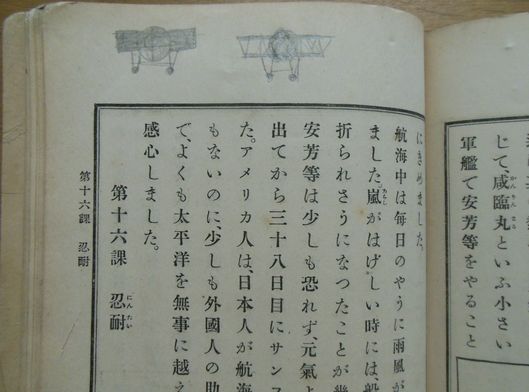 じて、咸臨丸といふ小さい
かんりんまる
軍艦で安芳等をやること
にきめました。
航海中は毎日のやうに雨風が
ました。嵐がはげしい時には船
あらし
折られさうになつたことが幾
安芳等は少しも恐れず、元氣よ
出てから三十八日目にサンフ
た。アメリカ人は、日本人が航海
もないのに、少しも外國人の助
で、よくも太平洋を無事に越え
感心しました。
第十六課 忍耐
にんたい
第十六課 忍耐